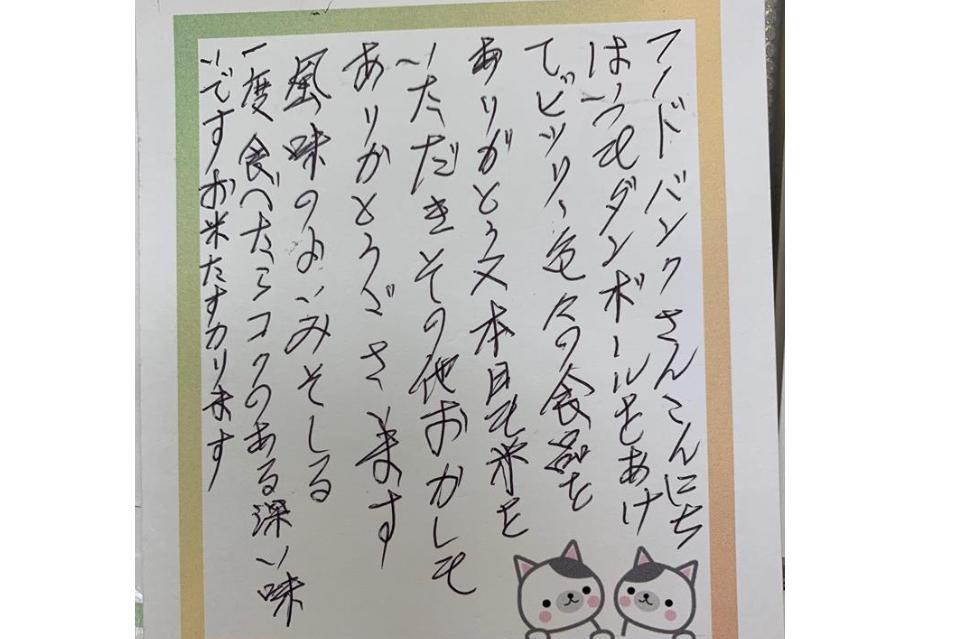 フードバンクさんこんにち
はいつもダンボールをあけ
てビックリ、色々の食品を
ありがとう又本日も米を
いただきその他おかしも
ありがとうございます
風味のよいみそしる
一度食べたらコクのある深い味
いですお米たすかります